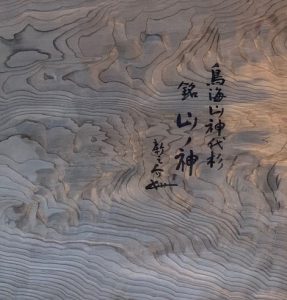 鳥海山神代杉
銘 山ノ神